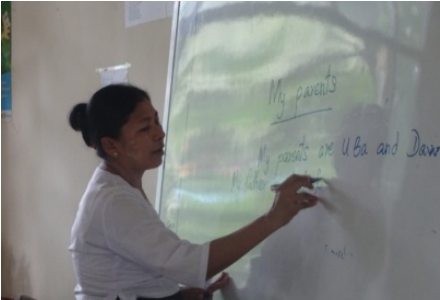 My parents
My parents are U Ba and Daw
My father